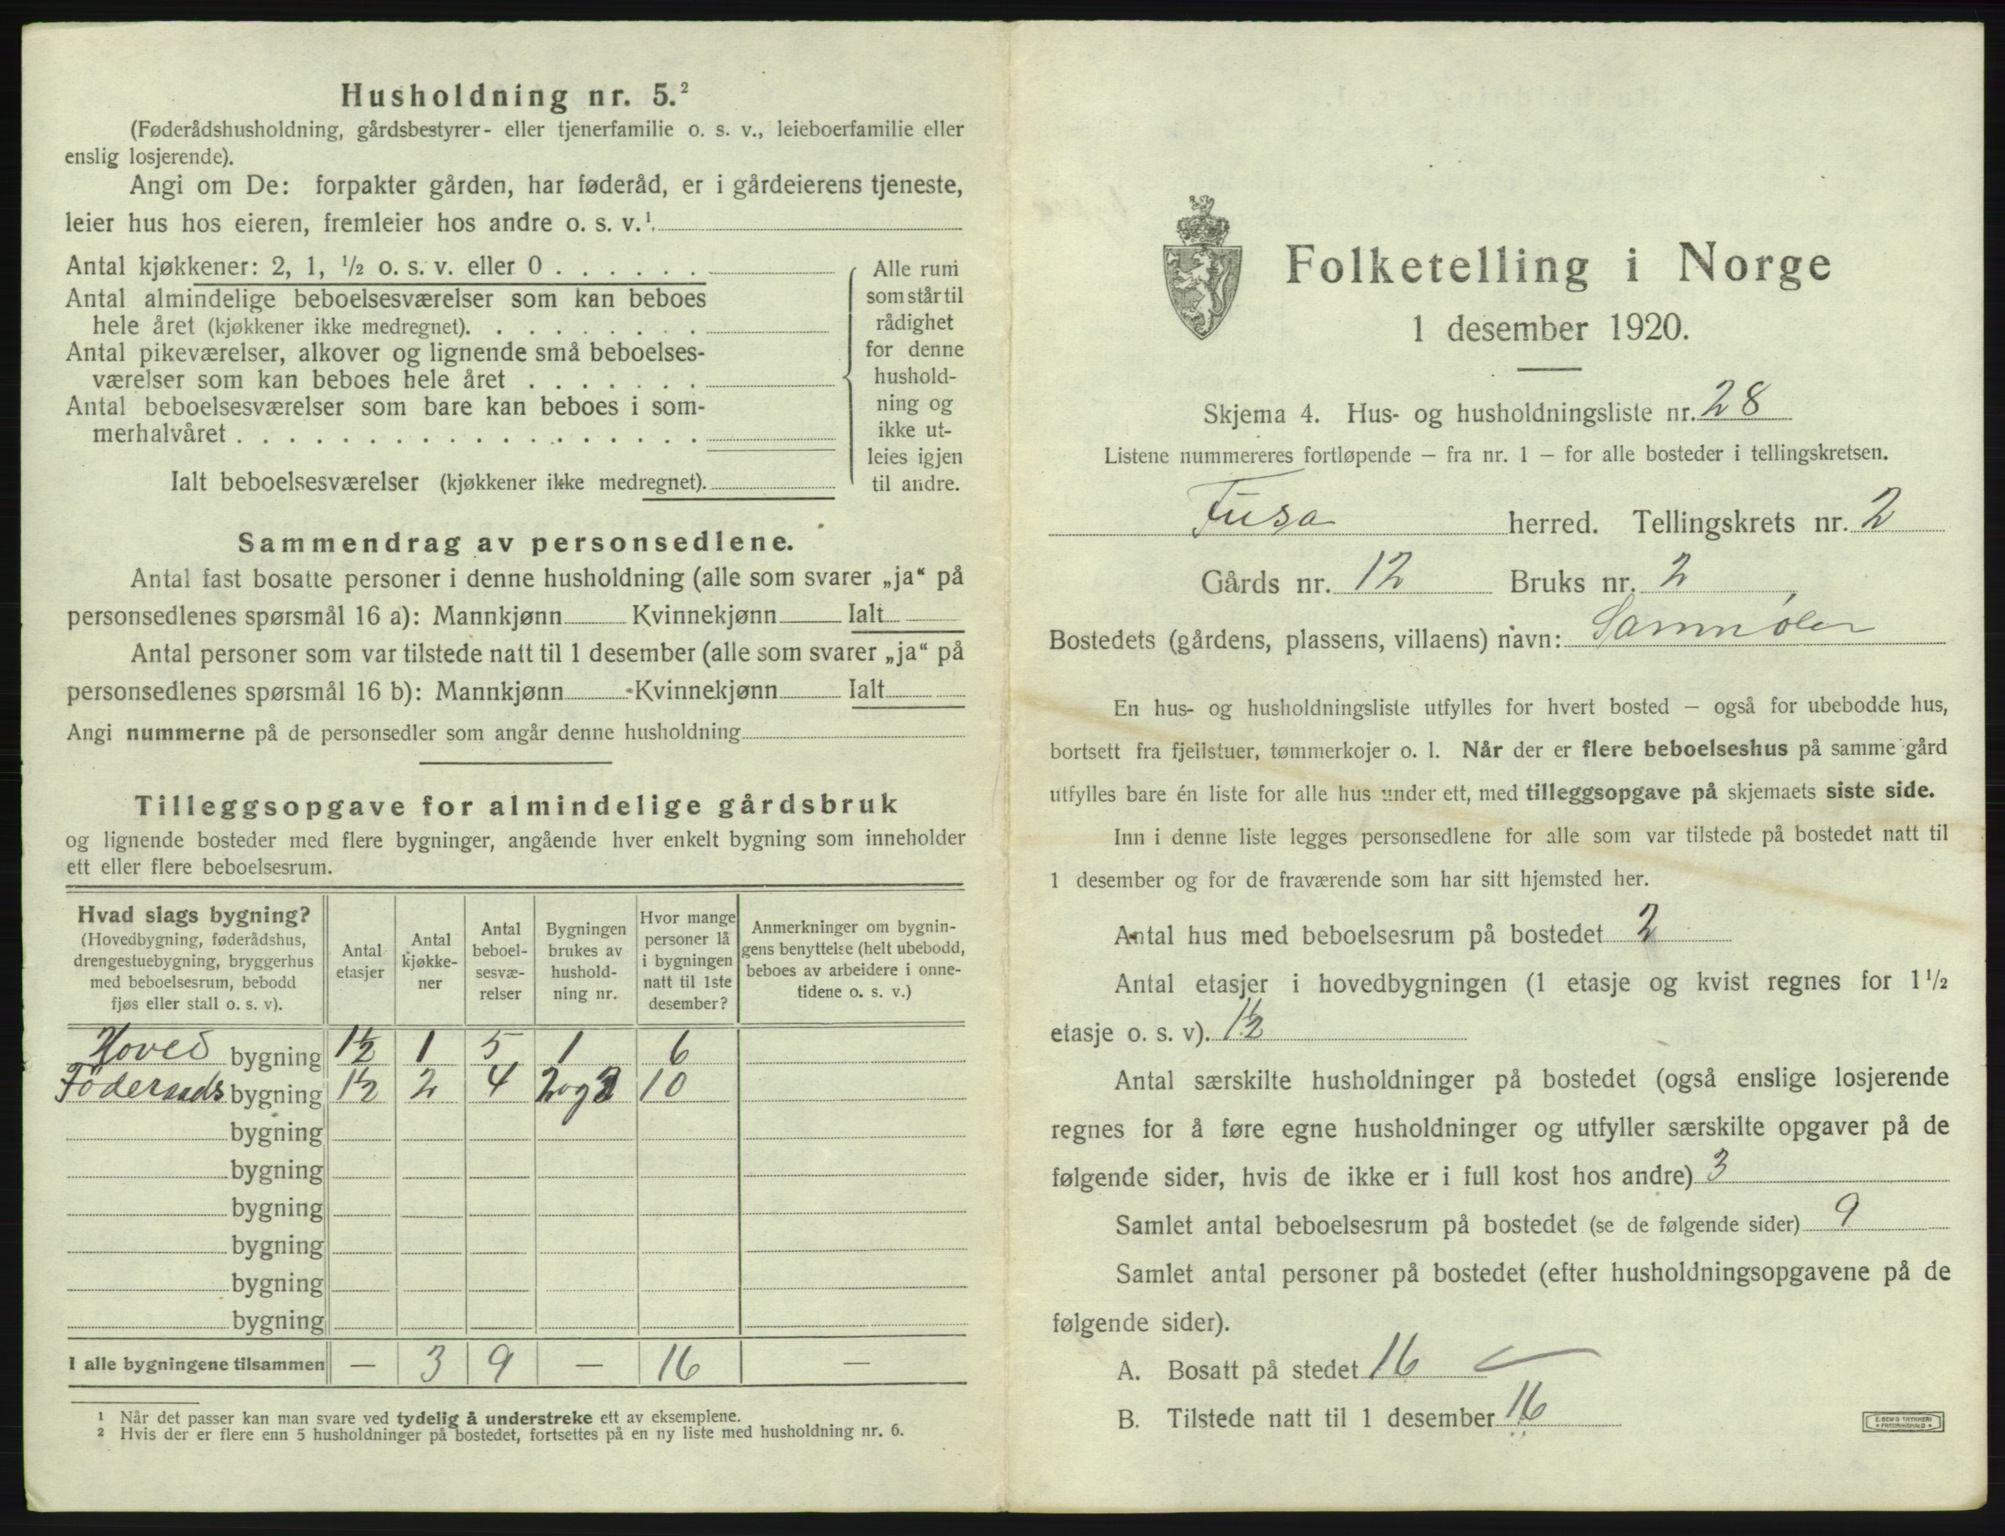 Husholdning nr. 5.²
(Føderådshusholdning, gårdsbestyrer- eller tjenerfamilie o. s. v., leieboerfamilie eller
enslig losjerende).
Angi om De: forpakter gården, har føderåd, er i gårdeierens tjeneste,
leier hus hos eieren, fremleier hos andre o. s. v.¹
Antal kjøkkener: 2, 1, ½ o. s. v. eller 0 . . . . . .
Antal almindelige beboelsesværelser som kan beboes
hele året (kjøkkener ikke medregnet). . . . . . . . .
Antal pikeværelser, alkover og lignende små beboelses-
værelser som kan beboes hele året . . . . . . .
Antal beboelsesværelser som bare kan beboes i som-
merhalvåret . . . . . . . . . . . . . . . . . .
Ialt beboelsesværelser (kjøkkener ikke medregnet).
Alle rum
som står til
rådighet
for denne
hushold-
ning og
ikke ut-
leies igjen
til andre.
Sammendrag av personsedlene.
Antal fast bosatte personer i denne husholdning (alle som svarer „ja“ på
personsedlenes spørsmål 16 a): Mannkjønn Kvinnekjønn Ialt
Antal personer som var tilstede natt til 1 desember (alle som svarer „ja“ på
personsedlenes spørsmål 16 b): Mannkjønn Kvinnekjønn Ialt
Angi nummerne på de personsedler som angår denne husholdning
Tilleggsopgave for almindelige gårdsbruk
og lignende bosteder med flere bygninger, angående hver enkelt bygning som inneholder
ett eller flere beboelsesrum.
Hvad slags bygning?
(Hovedbygning, føderådshus,
drengestuebygning, bryggerhus
med beboelsesrum, bebodd
fjøs eller stall o. s. v).
Antal
etasjer
Antal
kjøkke-
ner
Antal
beboel-
sesvæ-
relser
Bygningen
brukes av
hushold-
ning nr.
Hvor mange
personer lå
i bygningen
natt til 1ste
desember?
Anmerkninger om bygnin-
gens benyttelse (helt ubebodd,
beboes av arbeidere i onne-
tidene o. s. v.)
Hoved bygning 1½ 1 5 1 6
Føderaads bygning 1½ 2 4 2 og 3 10
bygning
bygning
bygning
bygning
bygning
bygning
I alle bygningene tilsammen — 3 9 — 16 —
¹ Når det passer kan man svare ved tydelig å understreke ett av eksemplene.
² Hvis der er flere enn 5 husholdninger på bostedet, fortsettes på en ny liste med husholdning nr. 6.
Folketelling i Norge
1 desember 1920.
Skjema 4. Hus- og husholdningsliste nr. 28
Listene nummereres fortløpende – fra nr. 1 – for alle bosteder i tellingskretsen.
Fusa herred. Tellingskrets nr. 2
Gårds nr. 12 Bruks nr. 2
Bostedets (gårdens, plassens, villaens) navn: Samnøen
En hus- og husholdningsliste utfylles for hvert bosted – også for ubebodde hus,
bortsett fra fjellstuer, tømmerkojer o. l. Når der er flere beboelseshus på samme gård
utfylles bare én liste for alle hus under ett, med tilleggsopgave på skjemaets siste side.
Inn i denne liste legges personsedlene for alle som var tilstede på bostedet natt til
1 desember og for de fraværende som har sitt hjemsted her.
Antal hus med beboelsesrum på bostedet 2
Antal etasjer i hovedbygningen (1 etasje og kvist regnes for 1½
etasje o. s. v). 1½
Antal særskilte husholdninger på bostedet (også enslige losjerende
regnes for å føre egne husholdninger og utfyller særskilte opgaver på de
følgende sider, hvis de ikke er i full kost hos andre) 3
Samlet antal beboelsesrum på bostedet (se de følgende sider) 9
Samlet antal personer på bostedet (efter husholdningsopgavene på de
følgende sider).
A. Bosatt på stedet 16
B. Tilstede natt til 1 desember 16